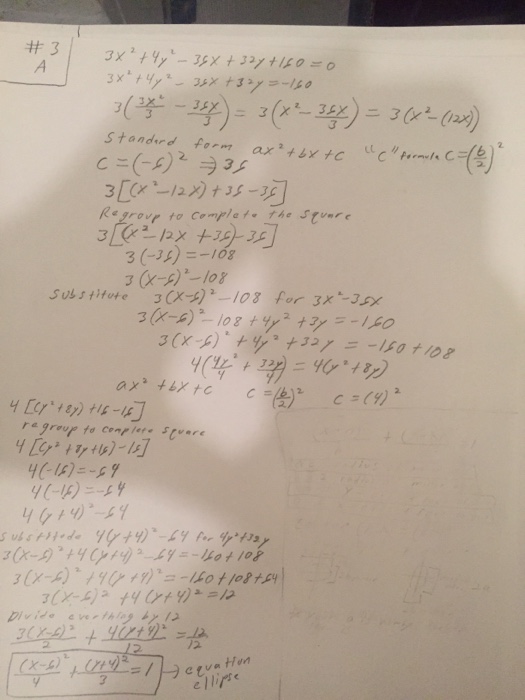 #3
A
3x² + 4y² - 36x + 32y + 160 = 0
3x² + 4y² - 36x + 32y = -160
3(3x²/3 - 36x/3) = 3(x² - 36x/3) = 3(x² - (12x))
Standard form ax² + bx + c "c" formula c = (b/2)²
c = (-6)² ⇒ 36
3[(x² - 12x) + 36 - 36]
Regroup to complete the square
3[(x² - 12x + 36) - 36]
3(-36) = -108
3(x-6)² - 108
Substitute 3(x-6)² - 108 for 3x² - 36x
3(x-6)² - 108 + 4y² + 3y = -160
3(x-6)² + 4y² + 32y = -160 + 108
4(4y²/4 + 32y/4) = 4(y² + 8y)
ax² + bx + c c = (b/2)² c = (4)²
4[(y² + 8y) + 16 - 16]
regroup to complete square
4[(y² + 8y + 16) - 16]
4(-16) = -64
4(-16) = -64
4(y+4)² - 64
Substitute 4(y+4)² - 64 for 4y² + 32y
3(x-6)² + 4(y+4)² - 64 = -160 + 108
3(x-6)² + 4(y+4)² = -160 + 108 + 64
3(x-6)² + 4(y+4)² = 12
Divide everthing by 12
3(x-6)²/12 + 4(y+4)²/12 = 12/12
(x-6)²/4 + (y+4)²/3 = 1 → equation
ellipse